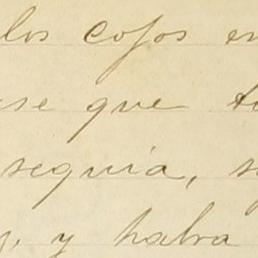 los cojos en
ese que t
seguia, s
y, y habra